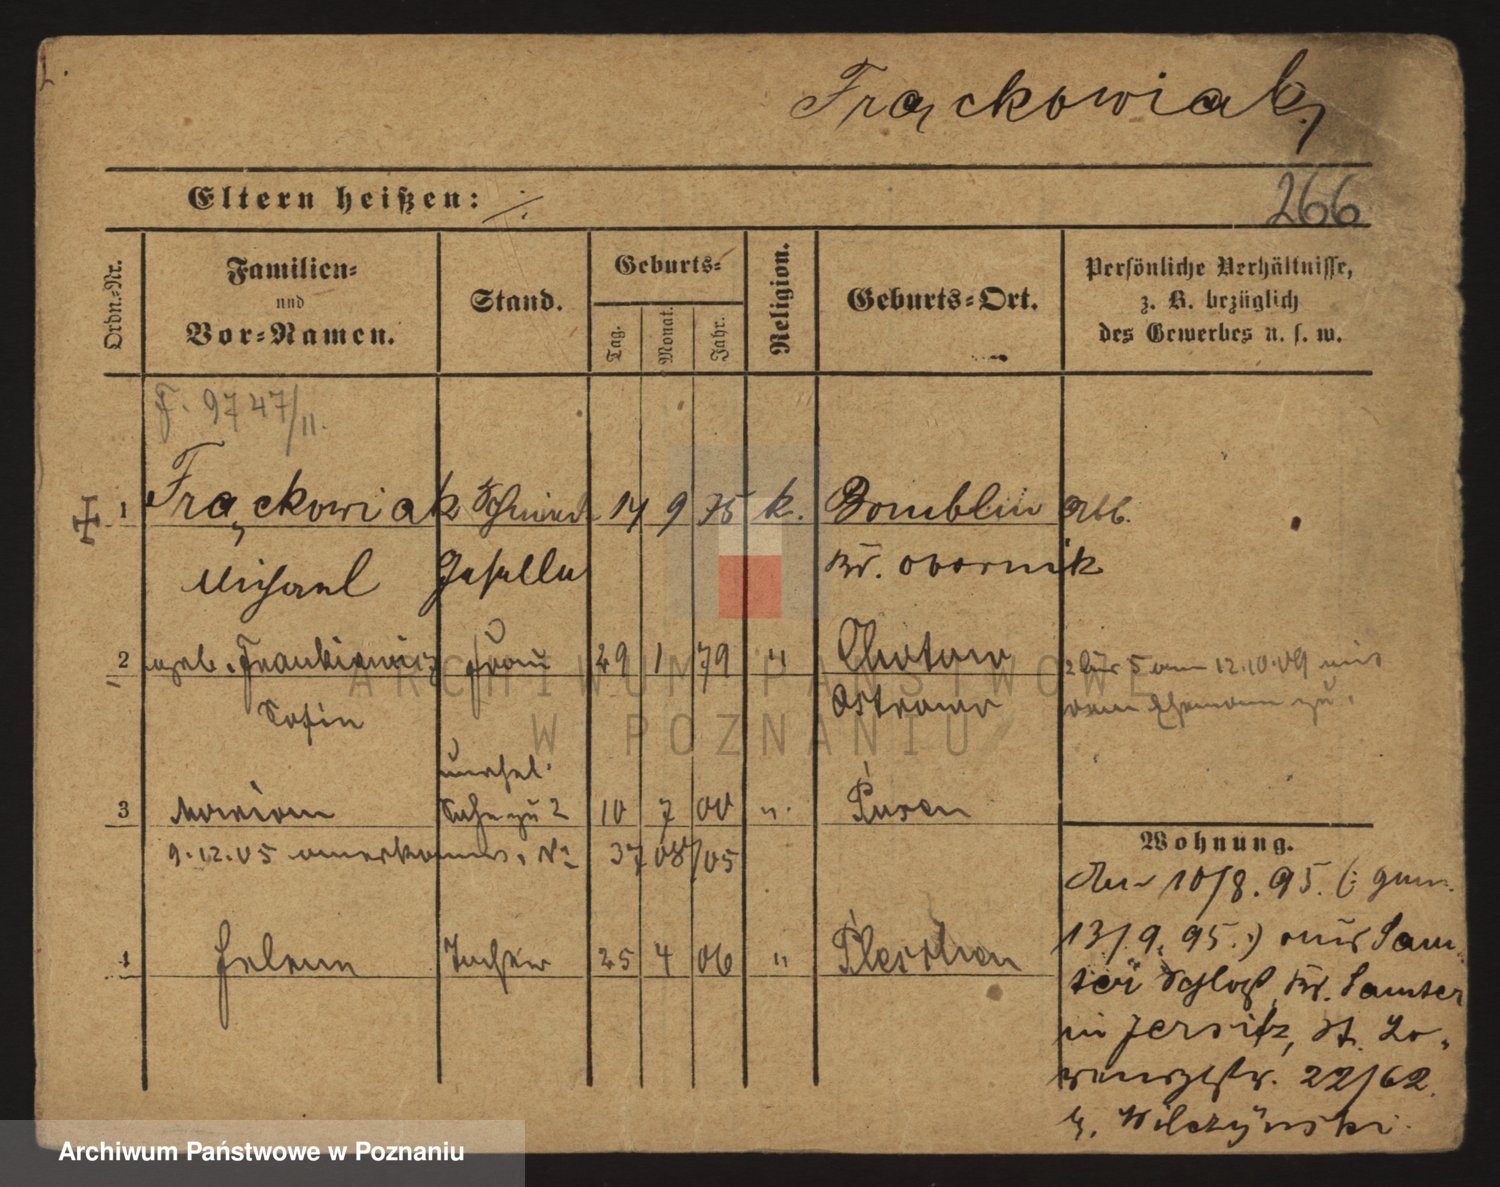 Frąckowiak,
Eltern heißen: ./.
266
Ordn.-Nr.
Familien-
und
Vor-Namen.
Stand.
Geburts-
Tag.
Monat.
Jahr.
Religion.
Geburts-Ort.
Persönliche Verhältnisse,
z. B. bezüglich
des Gewerbes u. s. w.
F. 9747/II.
1 Frąckowiak Schmied 14 9 75 k. Bomblin Abb.
Michael Geselle Kr. Obornik
2 geb. Frankiewicz Frau 29 1 79 " Chotow
2 bis 5 am 12.10.09 mit
Sofie Ostrowo
dem Ehemann zu.
unehel.
3 Marian Sohn zu 2 10 7 00 ". Posen
9.12.05 anerkannt, No 37 08/05
4 Helene Tochter 25 4 06 " Pleschen
Wohnung.
Den 10/8. 95. (: gem.
13/9. 95. :) aus Sam-
ter Schloß, Kr. Samter
in Jersitz, St. Lo-
renzstr. 22/62.
b. Wilczynski.
ARCHIWUM PAŃSTWOWE
W POZNANIU
Archiwum Państwowe w Poznaniu